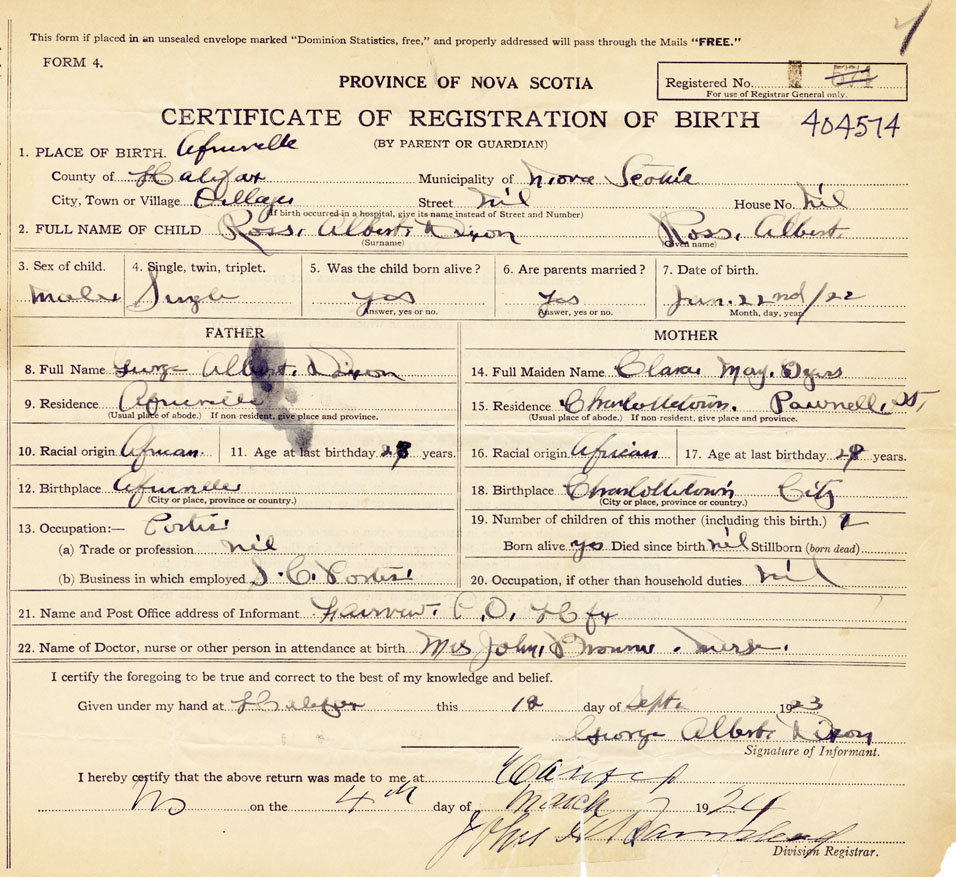 This form if placed in an unsealed envelope marked "Dominion Statistics, free," and properly addressed will pass through the Mails "FREE."
FORM 4.
PROVINCE OF NOVA SCOTIA
Registered No.
For use of Registrar General only.
CERTIFICATE OF REGISTRATION OF BIRTH 404574
(BY PARENT OR GUARDIAN)
1. PLACE OF BIRTH. Africville
County of Halifax Municipality of Nova Scotia
City, Town or Village Village Street nil House No. nil
(If birth occurred in a hospital, give its name instead of Street and Number)
2. FULL NAME OF CHILD Ross. Albert. Dixon Ross. Albert.
(Surname) (Given name)
3. Sex of child. 4. Single, twin, triplet. 5. Was the child born alive? 6. Are parents married? 7. Date of birth.
Male Single yes Yes Jun. 22nd/22
Answer, yes or no. Answer, yes or no. Month, day, year
FATHER MOTHER
8. Full Name George Albert. Dixon 14. Full Maiden Name Clara May.
9. Residence Africville 15. Residence Charlottetown. Pownell, St,
(Usual place of abode.) If non-resident, give place and province. (Usual place of abode.) If non-resident, give place and province.
10. Racial origin African. 11. Age at last birthday years. 16. Racial origin African 17. Age at last birthday years.
12. Birthplace Africville 18. Birthplace Charlottetown City
(City or place, province or country.) (City or place, province or country.)
13. Occupation:— Porter 19. Number of children of this mother (including this birth.)
(a) Trade or profession nil Born alive yes Died since birth nil Stillborn (born dead)
(b) Business in which employed Porter 20. Occupation, if other than household duties nil
21. Name and Post Office address of Informant Fairview. P.O. Hfx
22. Name of Doctor, nurse or other person in attendance at birth Mrs John, Nurse.
I certify the foregoing to be true and correct to the best of my knowledge and belief.
Given under my hand at Halifax this 18 day of Sept. 1923
George Albert. Dixon
Signature of Informant.
I hereby certify that the above return was made to me at Halifax
NS on the 4th day of March 1924
John
Division Registrar.